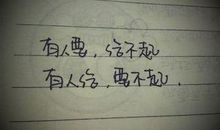 有人要，给不起
有人给，要不起.